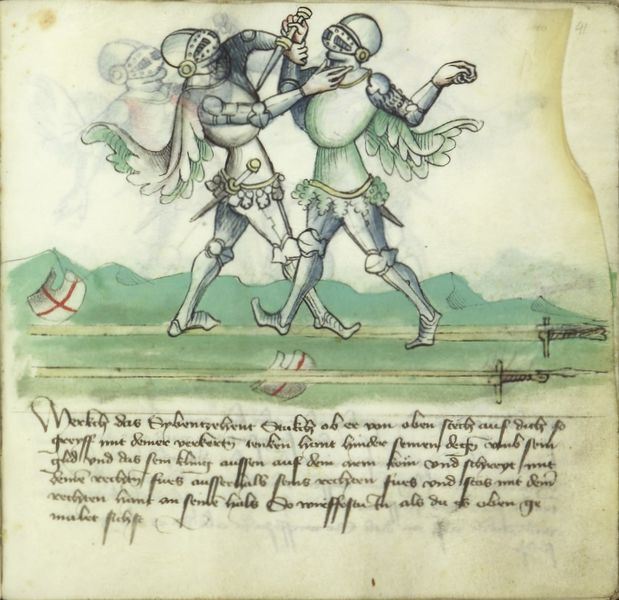 41
Merckh das Sybentzehent Stukch ob er von oben stech auf dich so
greyff mit deiner verkerten tenken hant hinder seinen degen umb sein
glid und das sein kling aussen auf dem arem kom und schreyt mit
deine rechten fues ausserhalb seins rechten fues und stos mit deiner
rechten hant an seine hals So wirffestu In als du es oben ge
malet sichst